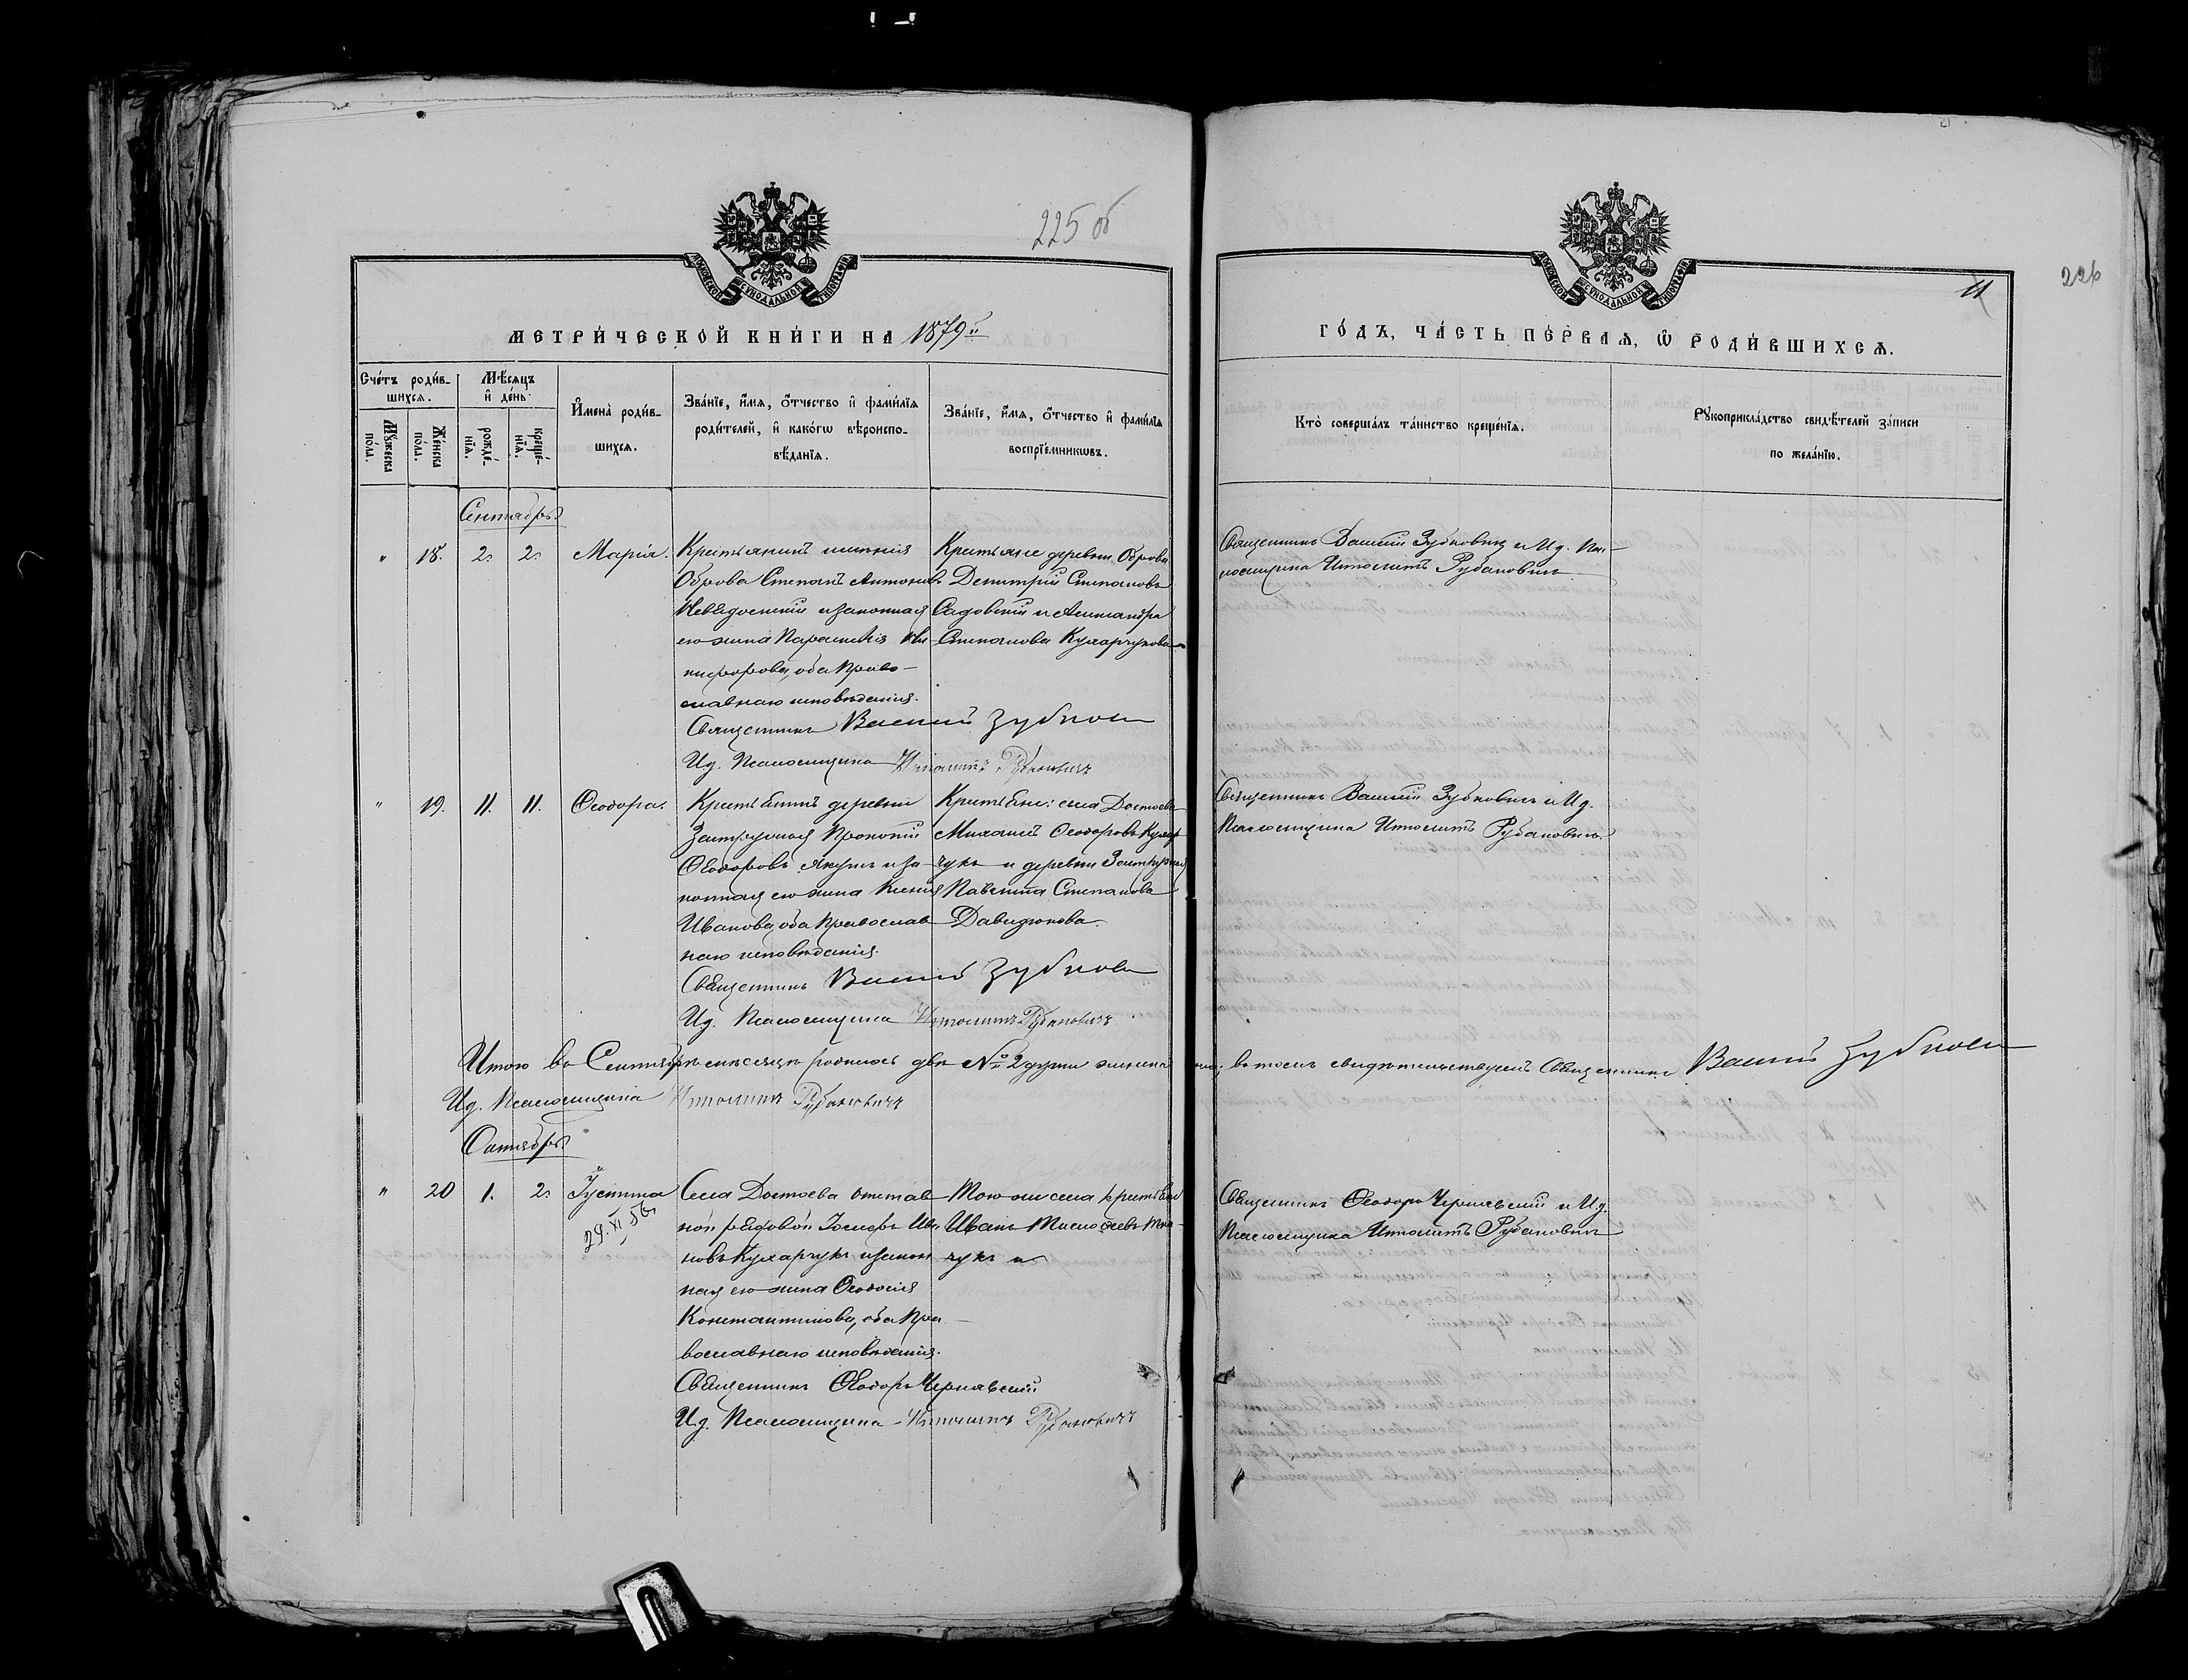 225 об
226
11
МОСКОВСКОЙ СѴНОДАЛЬНОЙ ТИПОГРАФІИ
МОСКОВСКОЙ СѴНОДАЛЬНОЙ ТИПОГРАФІИ
МЕТРИ́ЧЕСКОЙ КНИ́ГИ НА 1879й
ГО́ДЪ, ЧА́СТЬ ПЕ́РВАѦ, Ѡ РОДИ́ВШИХСѦ.
Сче́тъ роди́в-
шихсѧ.
Мꙋ́жеска по́ла.
Же́нска по́ла.
Мѣ́сѧцъ
и де́нь
рожде́-
нїѧ.
креще́-
нїѧ.
Имена̀ роди́в-
шихсѧ.
Зва́нїе, и́мѧ, о́тчество и фами́лїѧ
роди́телей, и како́гѡ вѣроиспо-
вѣ́данїѧ.
Зва́нїе, и́мѧ, о́тчество и фами́лїѧ
воспрїе́мникѡвъ.
Кто̀ соверша́лъ та́инство креще́нїѧ.
Рꙋкоприкла́дство свидѣ́телей за́писи
по жела́нїю.
Сентябрь
" 18. 2. 2. Марія.
Крестьянинъ имѣнія
Оброва Степанъ Антоновъ
и законная
его жена Параскевія Ни-
кифорова, оба Право-
славнаго исповѣданія.
Священникъ Василій Зубкович
Ид. Псаломщика Ипполитъ Рубановичъ
Крестьяне деревни Оброва
Димитрій Степановъ
Садовскій и Александра
Степанова Кухарчукова
Священникъ Василій Зубковичъ и Ид. Пса-
ломщика Ипполитъ Рубановичъ
" 19. 11. 11. Ѳеодора.
Крестьянинъ деревни
Прокопій
Ѳеодоровъ Якушъ и за-
конная его жена Ксенія
Иванова, оба Православ
наго исповѣданія.
Священникъ Василій Зубкович
Ид. Псаломщика Ипполитъ Рубановичъ
Крестьяне: села Достоева
Михаилъ Ѳеодоровъ Кухар
чукъ и деревни
Степанова
Давидюкова.
Священникъ Василій Зубковичъ и Ид.
Псаломщика Ипполитъ Рубановичъ
Итого въ Сентябрѣ мѣсяцѣ родилось двѣ № 2 души женска въ томъ свидѣтельствуемъ Священникъ Василій Зубкович
Ид. Псаломщика Ипполитъ Рубановичъ
Октябрь
" 20 1. 2. Іустина
29. XI 56
Села Достоева отстав
ной рядовой Іосифъ Ива
новъ Кухарчукъ и закон
ная его жена Ѳеодосія
Константинова, оба Пра
вославнаго исповѣданія.
Священникъ Ѳеодоръ Чернявскій
Ид. Псаломщика - Ипполитъ Рубановичъ
Того же села крестьяне
Иванъ
чукъ и
Священникъ Ѳеодоръ Чернявскій и Ид.
Псаломщика Ипполитъ Рубановичъ